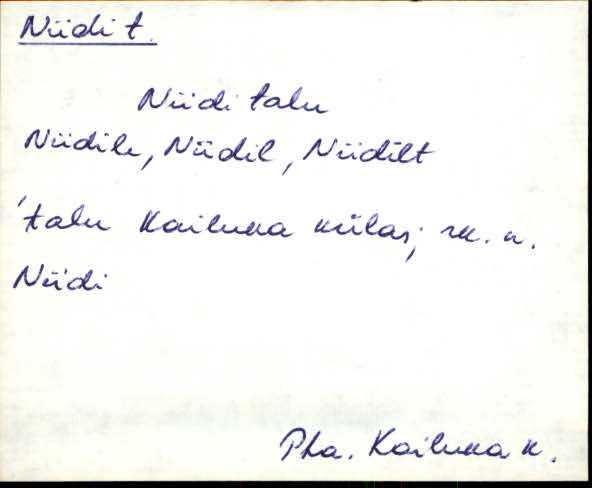 Niidi t.
Niidi talu
Niidile, Niidil, Niidilt
'talu Kailuka külas; rk. n.
Niidi
Pha. Kailuka k.